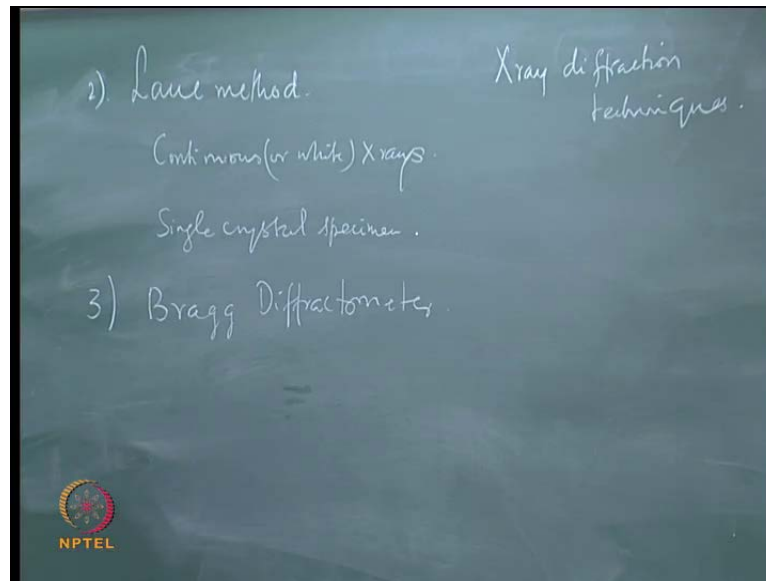 Xray diffraction
techniques.
2). Laue method.
Continuous (or white) Xrays.
Single crystal specimen.
3) Bragg Diffractometer.
NPTEL